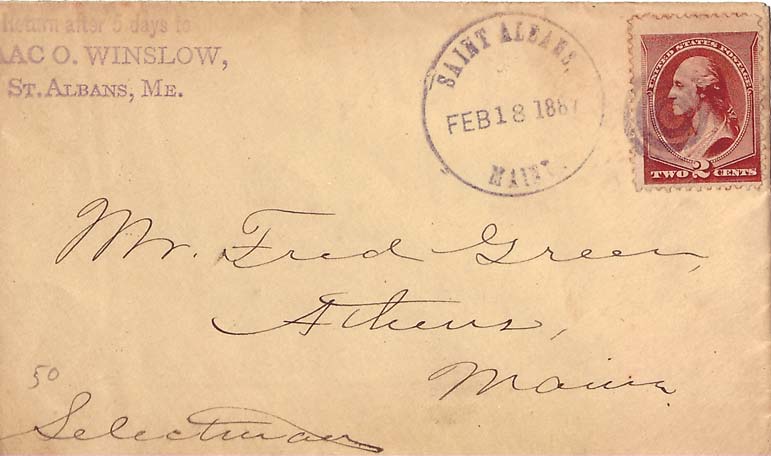 Return after 5 days to
AAC O. WINSLOW,
ST. ALBANS, ME.
SAINT ALBANS,
FEB 18 1887
MAINE.
UNITED STATES POSTAGE
TWO 2 CENTS
Mr. Fred Green,
Athens,
Maine
50
Selectman